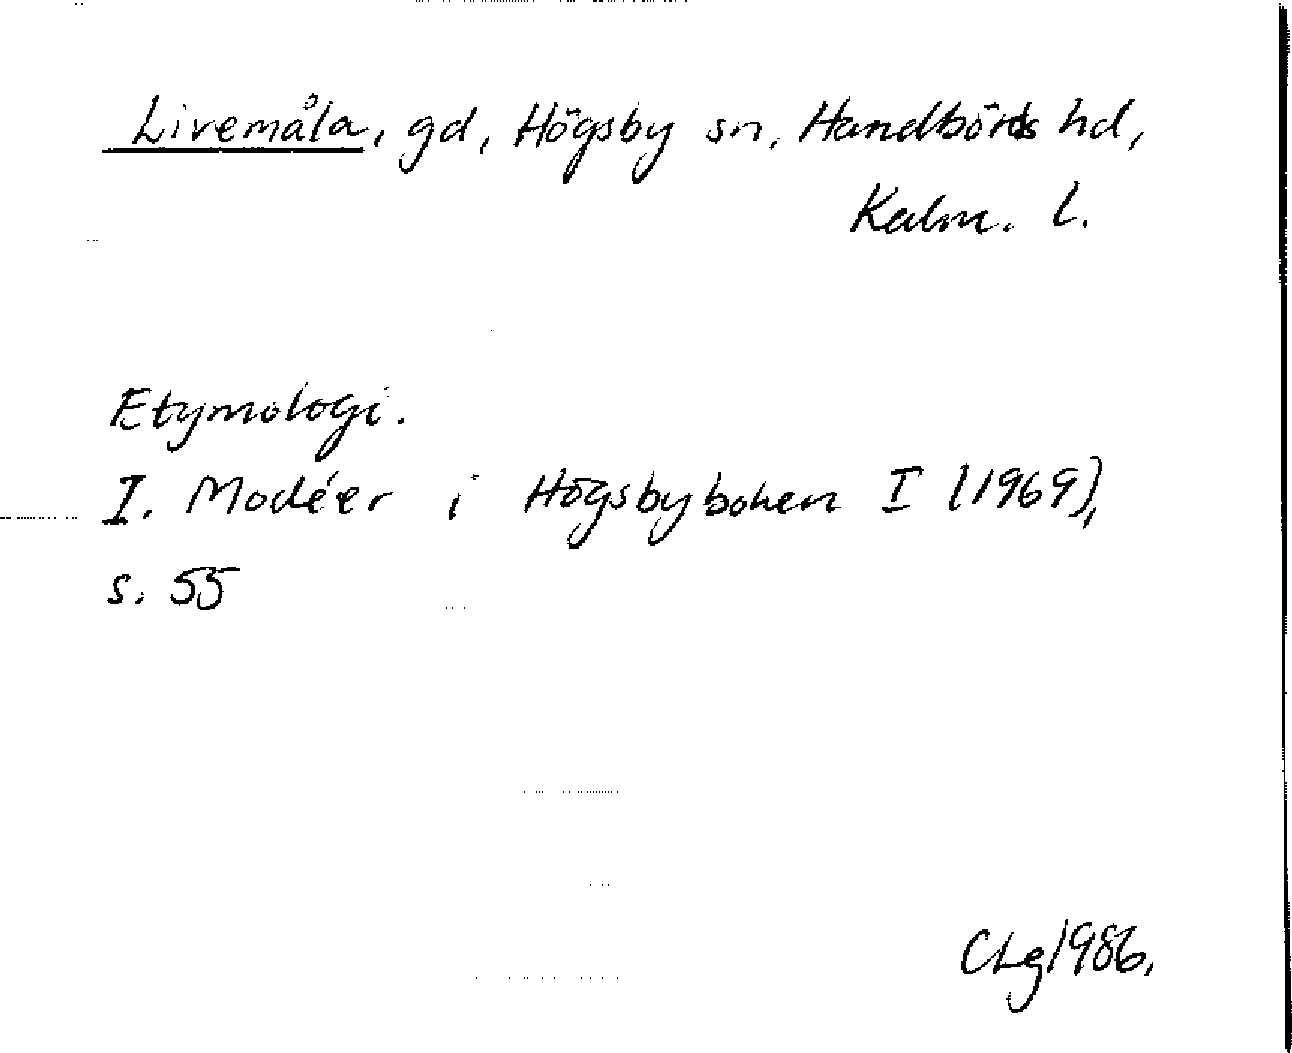 Livemåla, gd, Högsby sn, Handbörds hd,
Kalm. l.
Etymologi.
I. Modéer i Högsbyboken I (1969),
s. 55
CLg 1986.